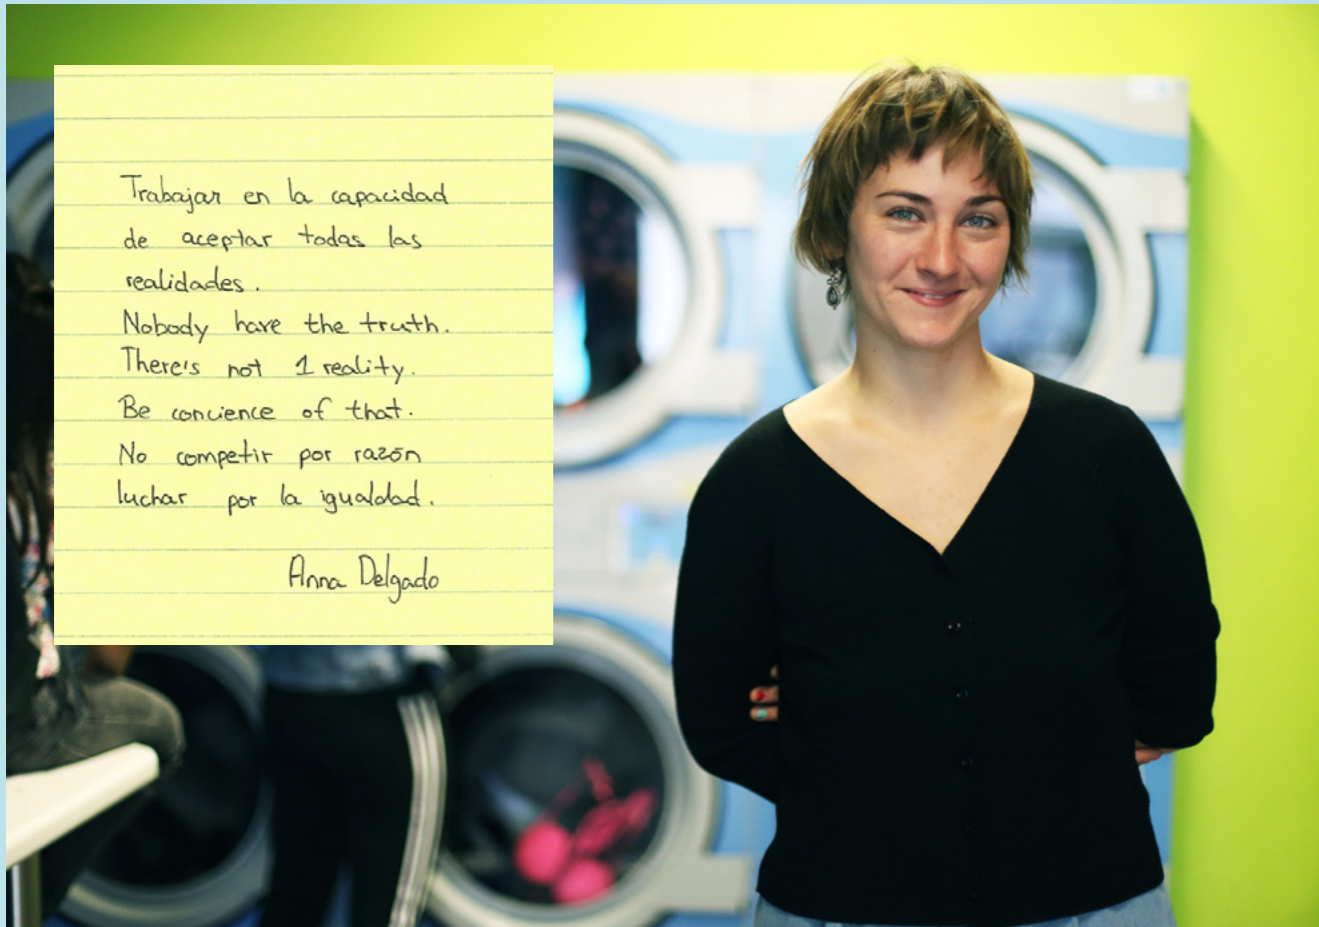 Trabajar en la capacidad
de aceptar todas las
realidades.
Nobody have the truth.
There's not 1 reality.
Be concience of that.
No competir por razón
luchar por la igualdad.
Anna Delgado